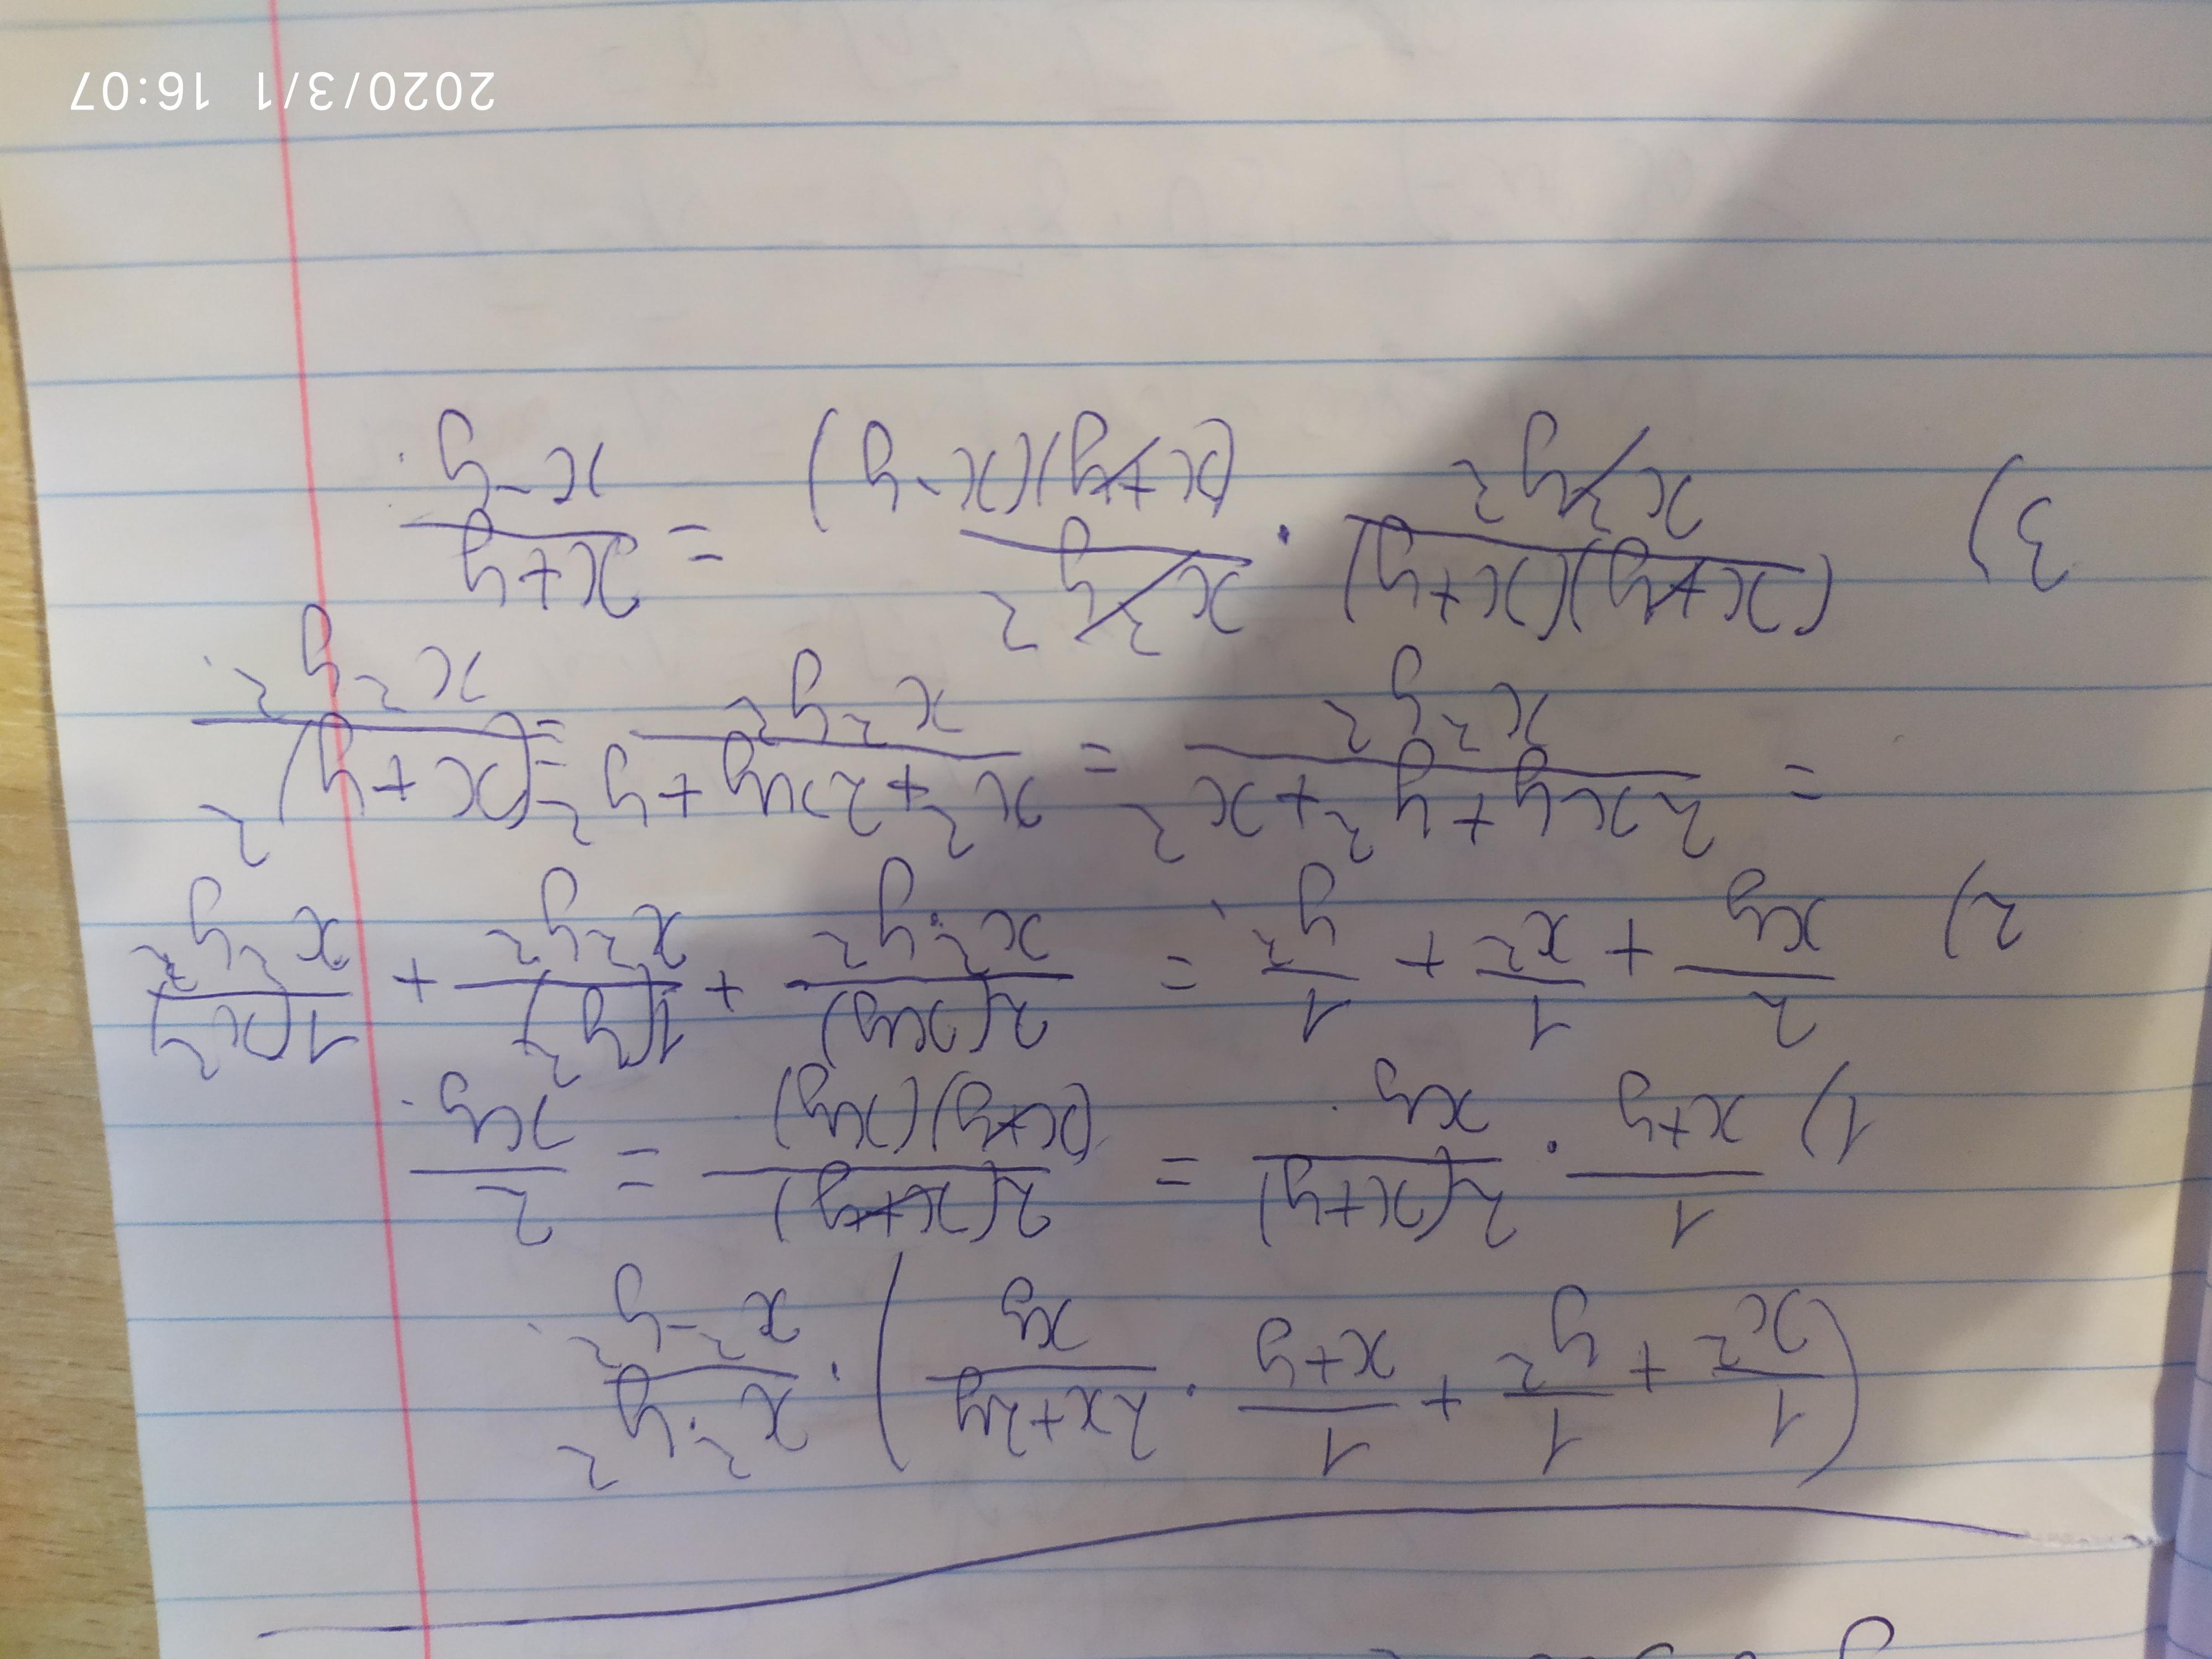 (1/x² + 1/y² + 1/x+y · 2x+2y/xy) · x²·y²/x²-y².
1) 1/x+y · 2(x+y)/xy = 2(x+y)/(x+y)(xy) = 2/xy.
2) 2/xy + 1/x² + 1/y² = 2(xy)/x²·y² + 1(y²)/x²y² + 1(x²)/x²y²
= 2xy+y²+x²/x²y² = x²+2xy+y²/x²y² = (x+y)²/x²y².
3) (x+y)(x+y)/x²y² · x²y²/(x+y)(x-y) = x+y/x-y.
2020/3/1 16:07